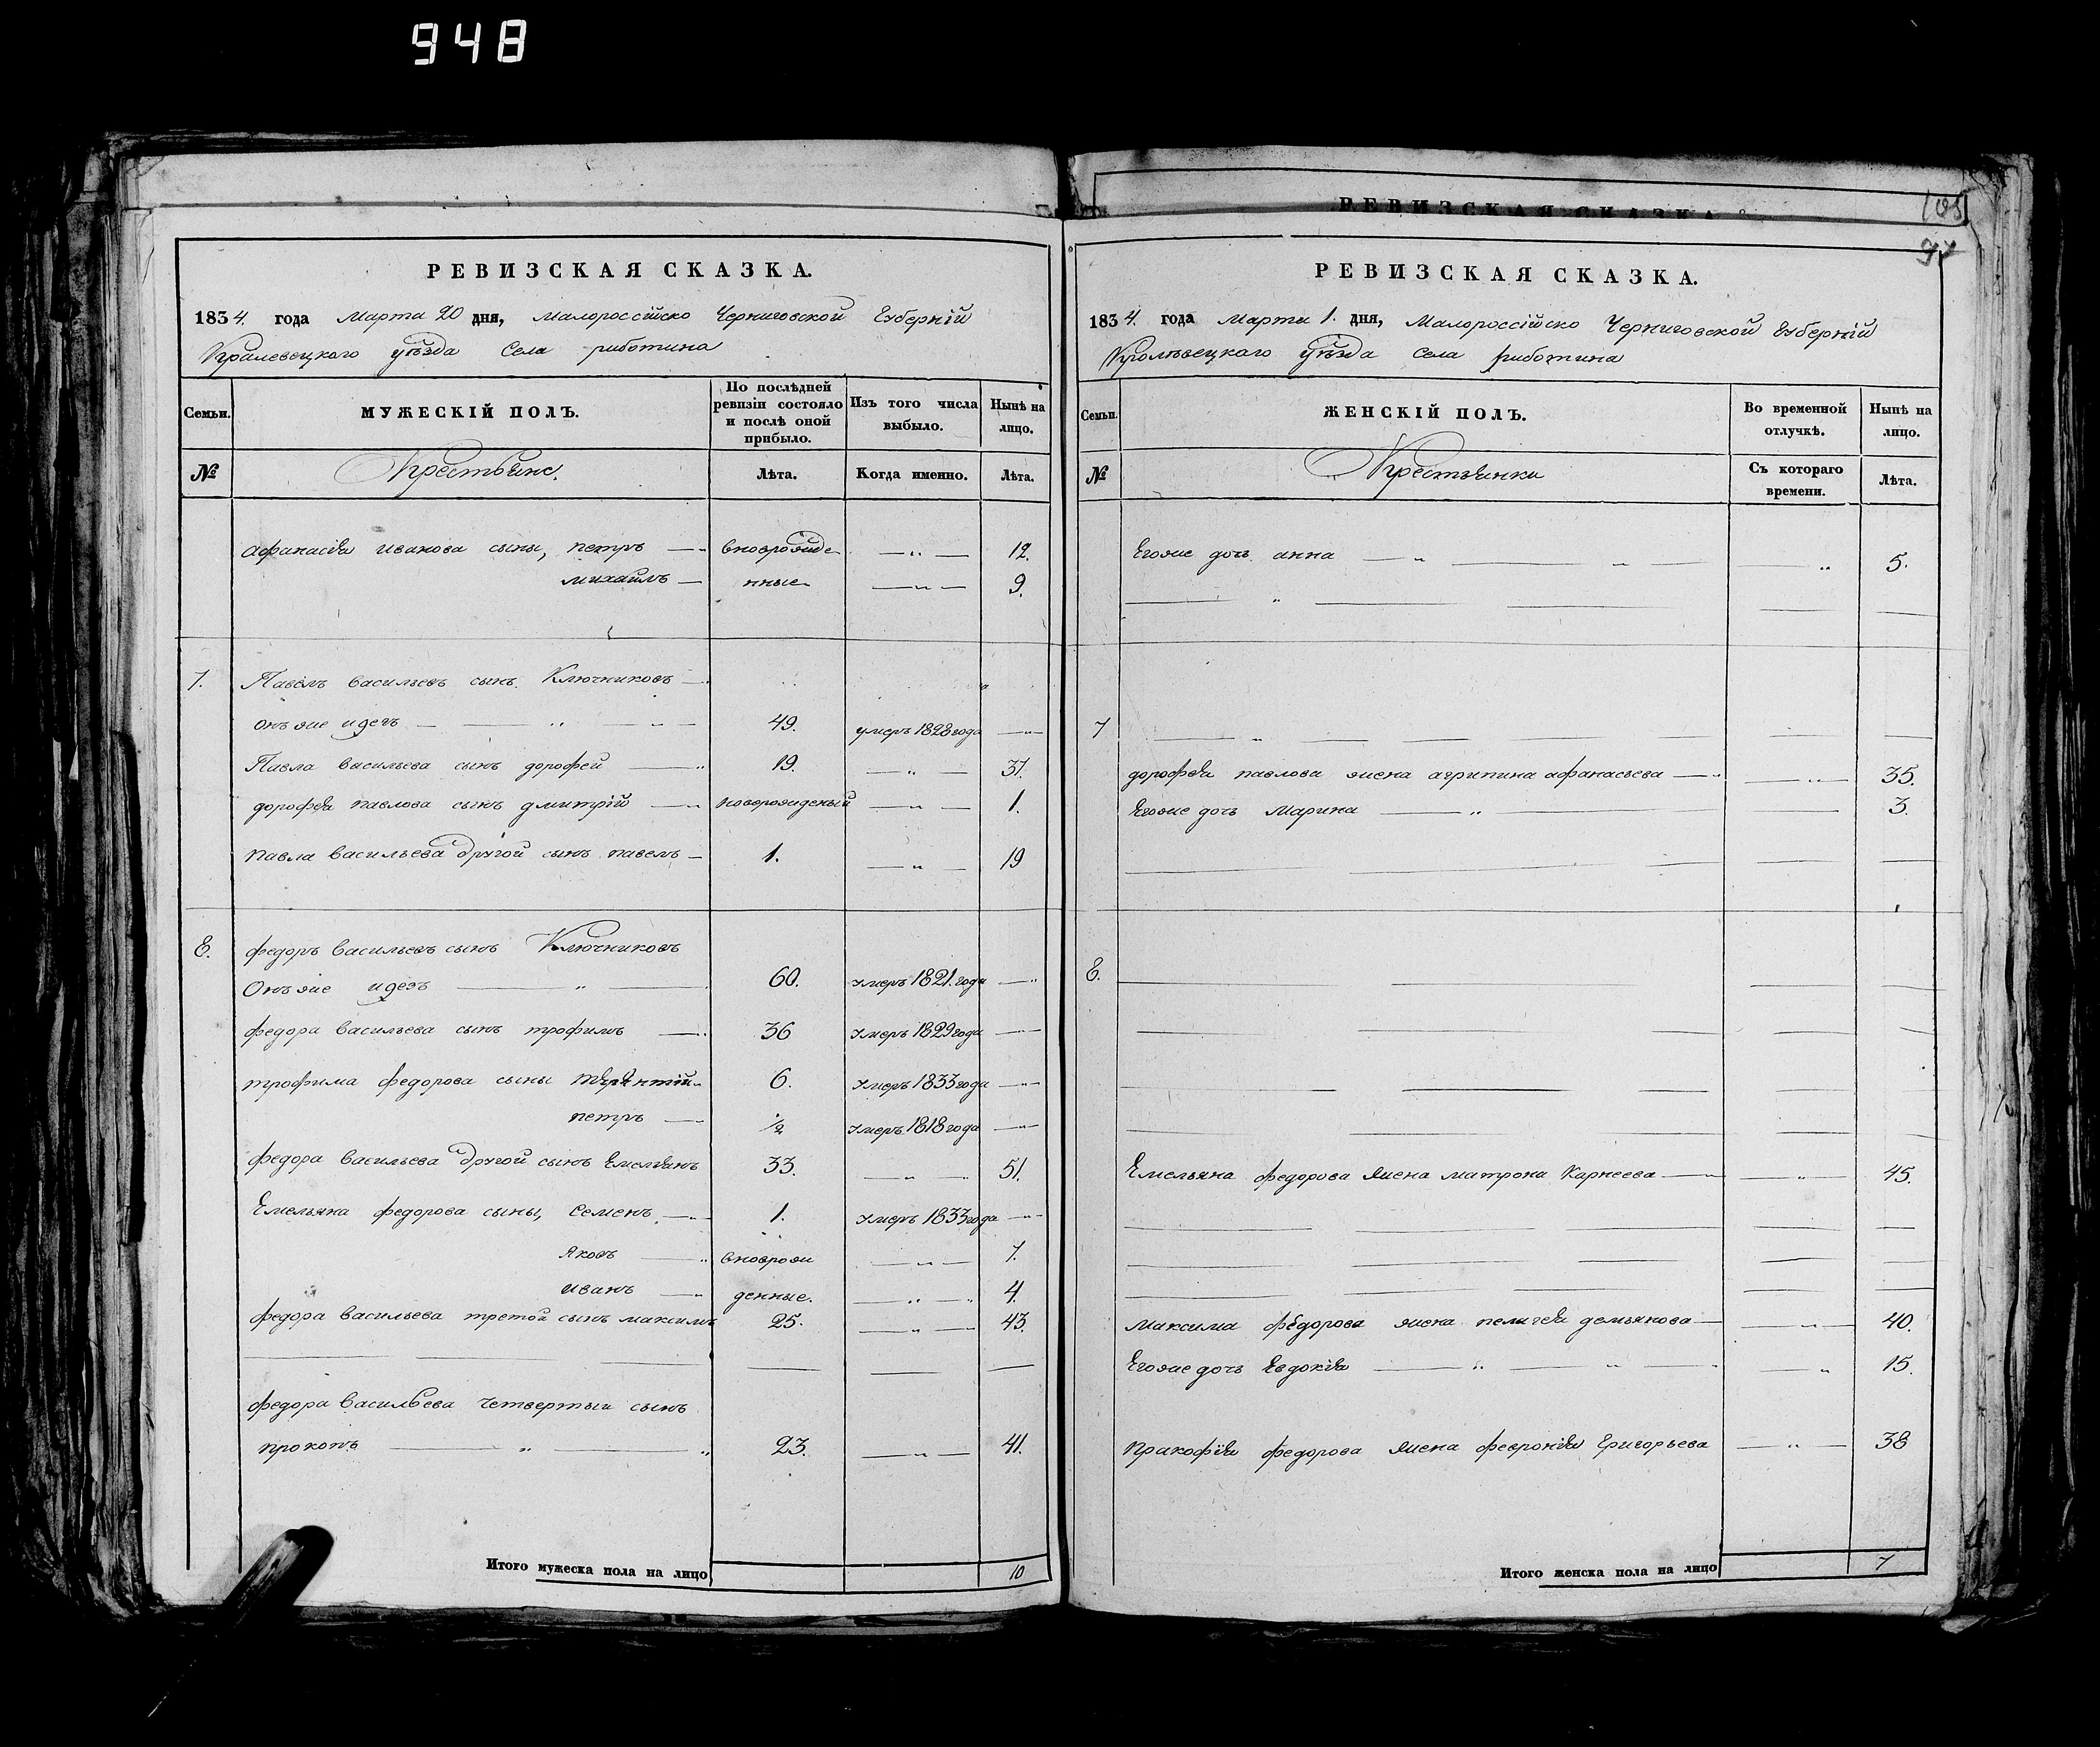 948
РЕВИЗСКАЯ СКАЗКА.
1834. года Марта 20 дня, Малороссійско Черниговской Губерніи
Кралевецкого уѣзда Села риботина
Семьи. МУЖЕСКІЙ ПОЛЪ. По послѣдней ревизіи состояло и послѣ оной прибыло. Изъ того числа выбыло. Нынѣ на лицо.
№ Крестьяне. Лѣта. Когда именно. Лѣта.
афанасія иванова сыны, петръ — вноврожде — „ — 12.
михаилъ — нные — „ — 9.
7. Павелъ васильевъ сынъ Ключниковъ —
онъ же идетъ — „ — 49. умеръ 1828 года — „ —
Павла васильева сынъ дорофей — 19. — „ — 37.
дорофея павлова сынъ дмитрій — новорожденый — „ — 1.
павла васильева другой сынъ павелъ — 1. — „ — 19
8. федоръ васильевъ сынъ Ключниковъ
Онъ же идетъ — „ — 60. умеръ 1821. года — „
федора васильева сынъ трофимъ — 36 умеръ 1829 года — „ —
трофима федорова сыны терентій 6. умеръ 1833 года — „ —
петръ — 1/2 умеръ 1818 года — „ —
федора васильева другой сынъ Емельянъ 33. — „ — 51.
Емельяна федорова сыны, Семенъ — 1. умеръ 1833 года — „ —
яковъ — вноврож — „ — 7.
иванъ — денные. — „ — 4.
федора васильева третой сынъ максимъ 25. — „ — 43.
федора васильева четвертыи сынъ
прокопъ — „ — 23. — „ — 41.
Итого мужеска пола на лицо 10
РЕВИЗСКАЯ СКАЗКА
105
РЕВИЗСКАЯ СКАЗКА.
1834. года Марта 1. дня, Малороссійско Черниговской Губерніи
Кролѣвецкаго уѣзда Села риботина
Семьи. ЖЕНСКІЙ ПОЛЪ. Во временной отлучкѣ. Нынѣ на лицо.
№ Крестьянки Съ котораго времени. Лѣта.
Егоже дочь анна — „ — „ — — „ 5.
7 — „ —
дорофея павлова жена агрипина афанасьева — „ — „ — 35.
Егоже дочь Марина — „ — 3.
8.
Емельяна федорова жена матрона Карнеева — „ — 45.
максима федорова жена пелагея демьянова — „ — 40.
Егоже дочь Евдокія — „ — „ — „ 15.
пракофія федорова жена февронія Григорьева — „ — 38
Итого женска пола на лицо 7